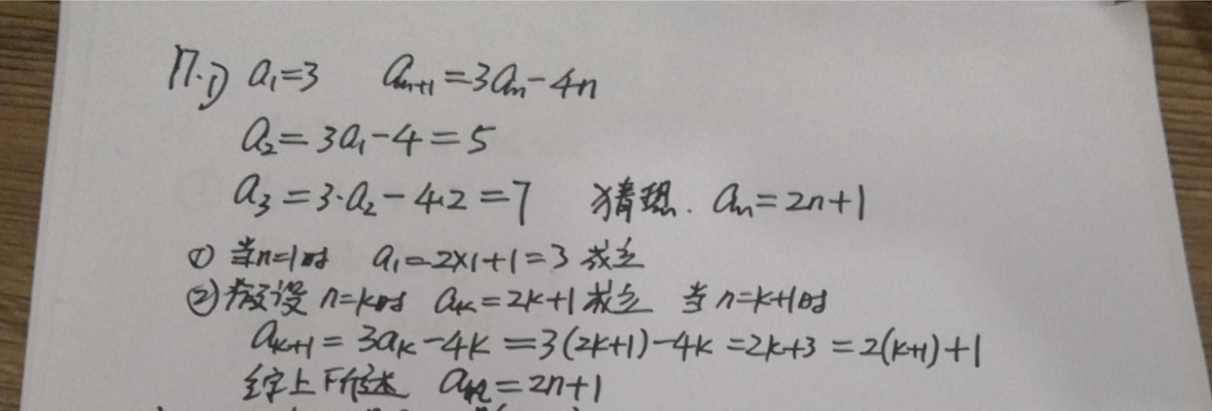 17.1) a₁=3 aₙ₊₁=3aₙ-4n
a₂=3a₁-4=5
a₃=3·a₂-4·2=7 猜想. aₙ=2n+1
① 当n=1时 a₁=2×1+1=3 成立
②假设 n=k时 aₖ=2k+1 成立 当 n=k+1时
aₖ₊₁=3aₖ-4k=3(2k+1)-4k=2k+3=2(k+1)+1
综上所述 aₙ=2n+1